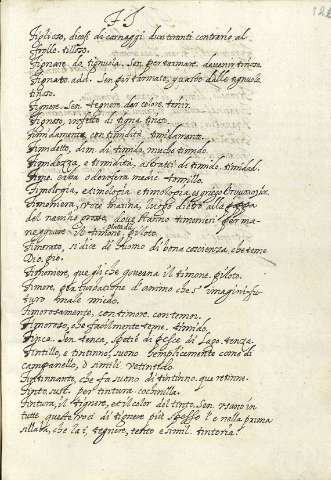 T I
Tiglioso, dicesi di carnaggi duri tanti contrario al
frollo. tilloso.
Tignare da tignuola. Sen. per tarmare, divenir tignoso.
Tignato add. Sen. per tarmato, guasto dalle tignuole.
tignoso.
Tignere. Sen. tegnere, dar colore. tenir.
Tignoso, infetto di tigna. tinoso.
Timidamente con timidità. timidamente.
Timidetto, dim. di timido, muche timido.
Timidezza, e timidità, astratti di timido, timidad.
Timo. erba odorosa nota. tomillo.
Timologia, etimologia e timologia
Timoniera, voce marina, luogo dietro alla
del naviho grosso, dove stanno timonieri per ma-
neggiare il timone, piloto.
Timorato, si dice di huomo di bona coscienza, che teme
Dio. pio.
Timoniere, que gli che governa il timone. piloto.
Timore, perturbatione d'animo che s' imagini fu-
turo male. miedo.
Timorosamente, con timore. con temor.
Timoroso, che facilmente teme. timido.
Tinca. Sen. tenca, spetie di pesce di lago. tenca.
Tintillo, e tintinno, suono semplicemente come di
campanello, o simili. retintido.
Tintinnante, che fa suono di tintinno. que retinne.
Tinto sust. per tintura. cochinilla.
Tintura, il tignere, et il color del tinto. Sen. usano in
tutte queste voci di tignere più spesso l'e nella prima
sillaba, che la i, tegnere, tento e simil. tintoria.